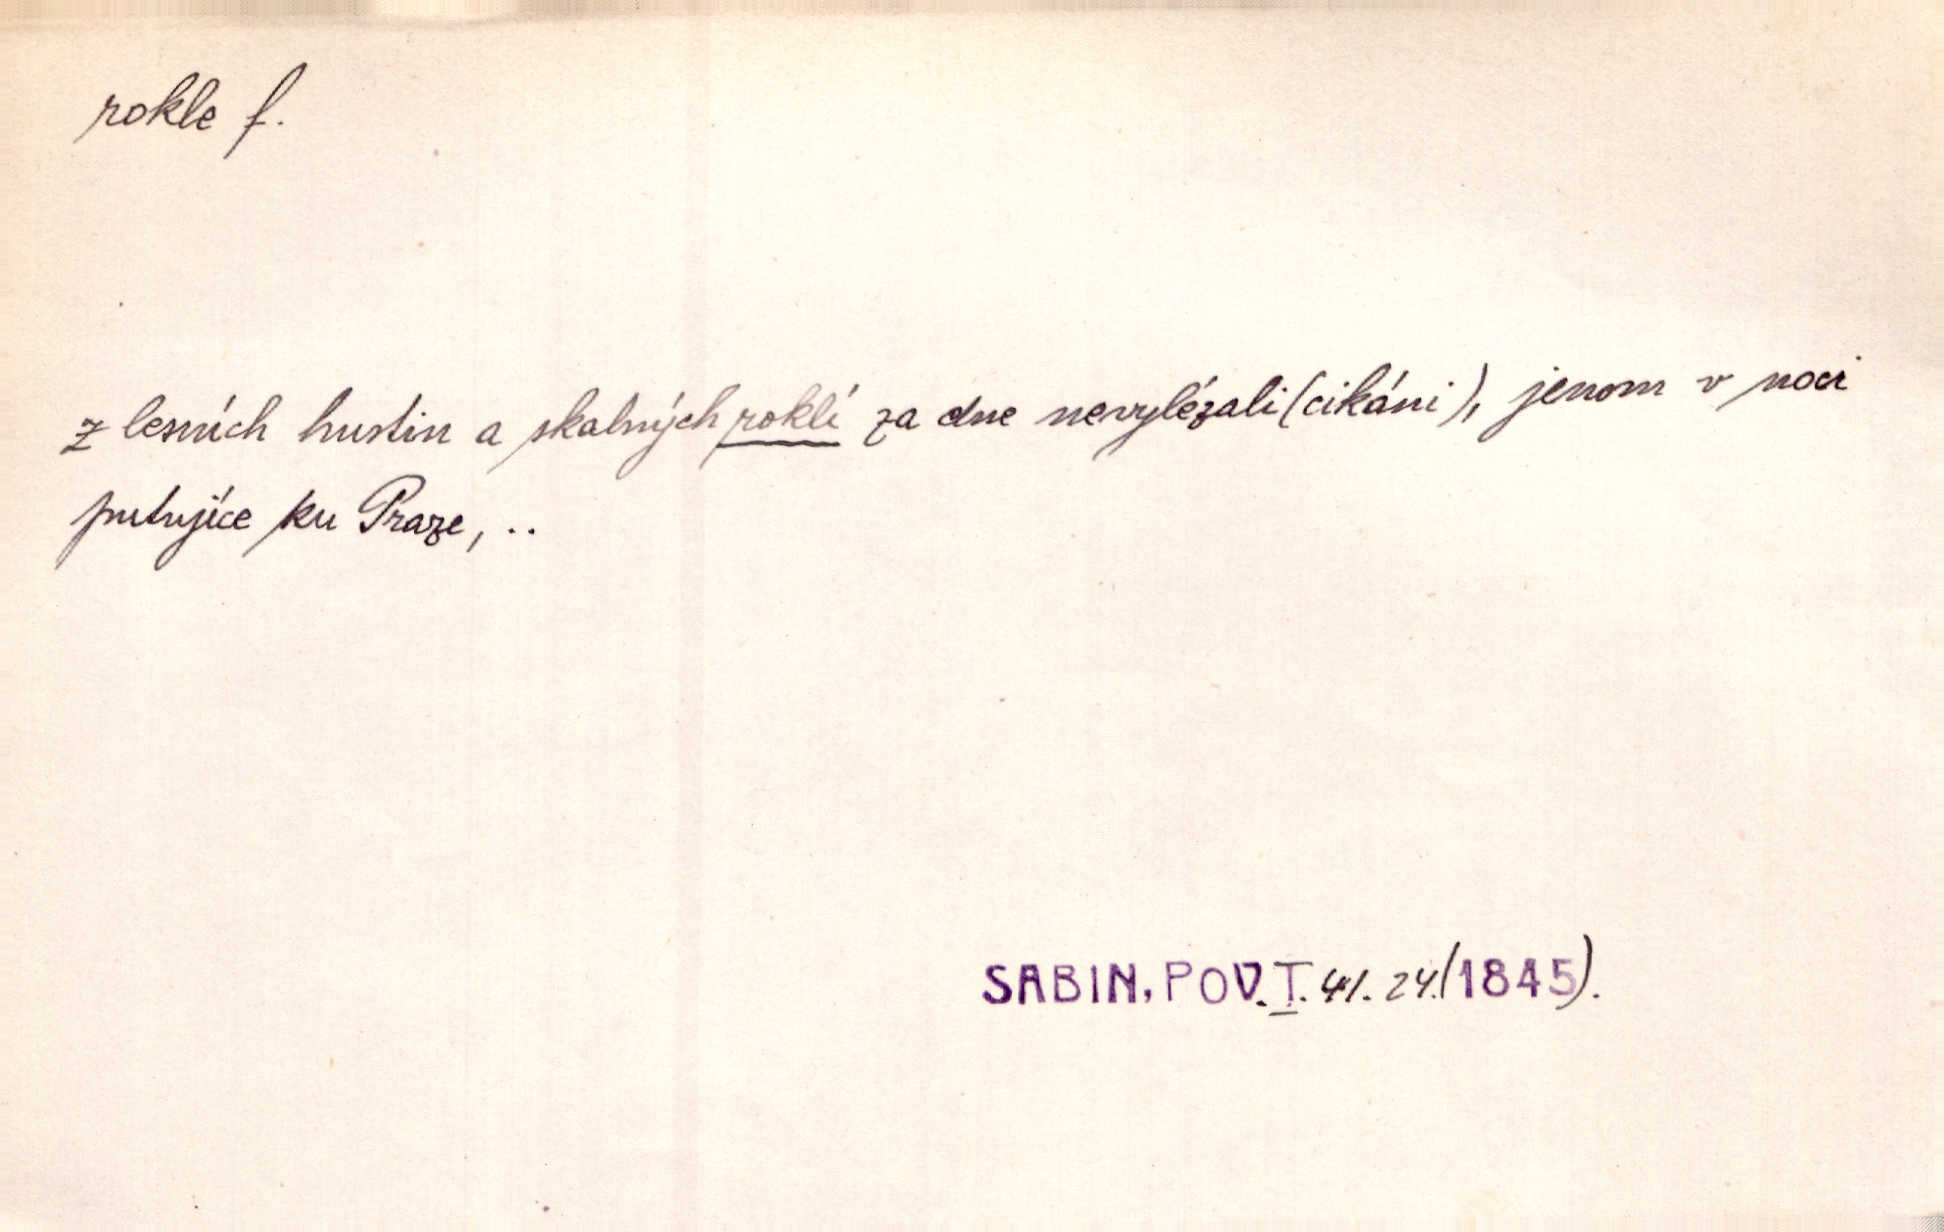 rokle f.
z lesních hustin a skalných roklí za dne nevylézali (cikáni), jenom v noci
putujíce ku Praze, ..
SABIN, POV. I. 41. 24. (1845).